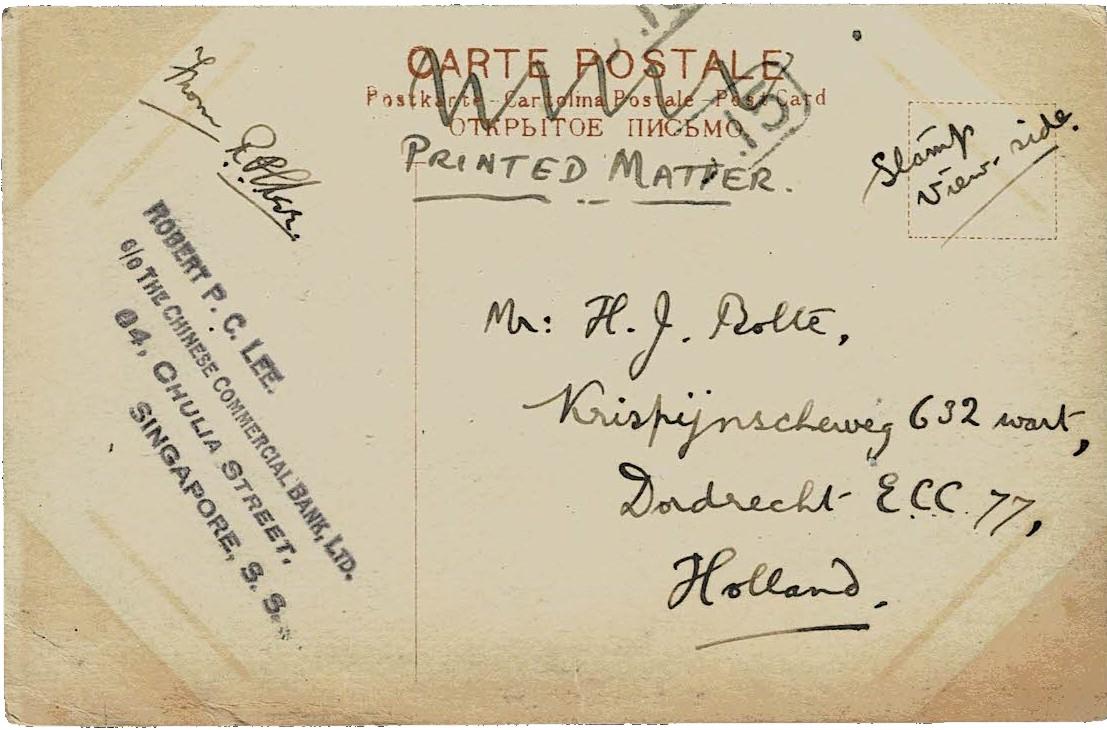 CARTE POSTALE
Postkarte - Cartolina Postale - Post Card
ОТКРЫТОЕ ПИСЬМО
PRINTED MATTER.
15
Stamp
View. side.
From
ROBERT P. C. LEE.
C/O THE CHINESE COMMERCIAL BANK, LTD.
64, CHULIA STREET.
SINGAPORE, S. S.
Mr: H. J. Bolte,
Krispijnscheweg 632 wart,
Dordrecht E.C.C. 77,
Holland.